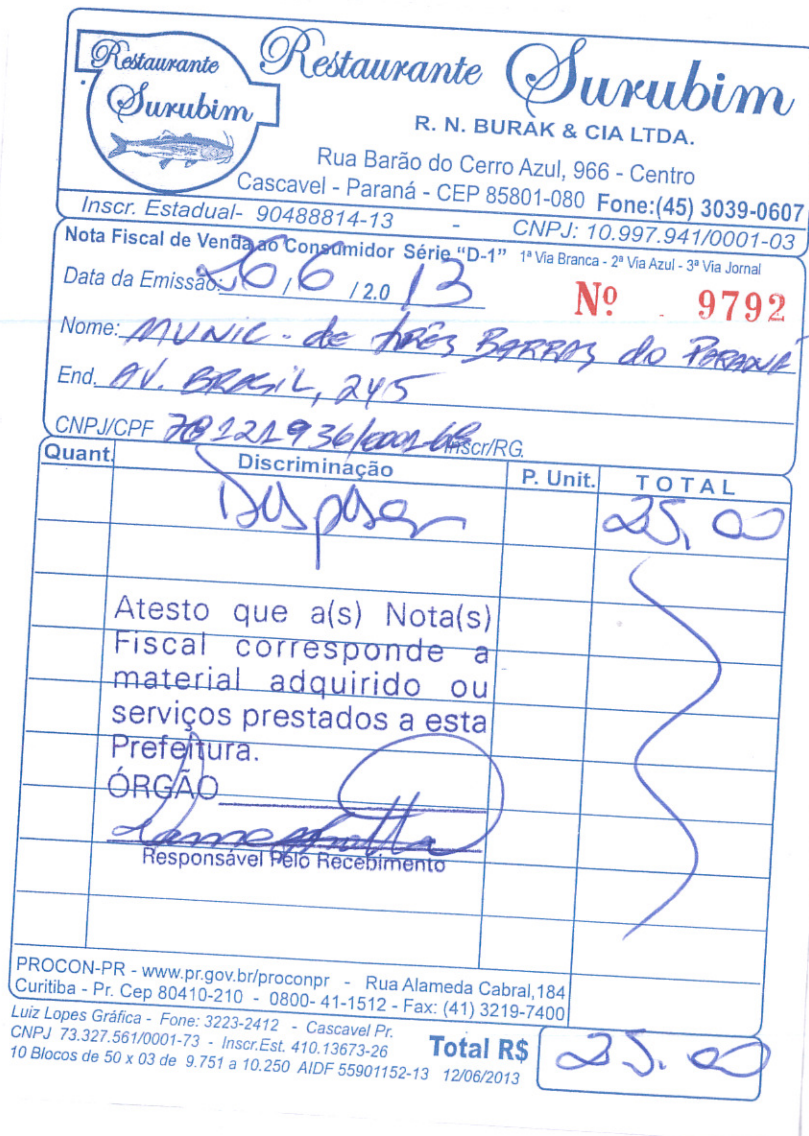 Restaurante
Surubim
Restaurante Surubim
R. N. BURAK & CIA LTDA.
Rua Barão do Cerro Azul, 966 - Centro
Cascavel - Paraná - CEP 85801-080 Fone:(45) 3039-0607
Inscr. Estadual- 90488814-13 - CNPJ: 10.997.941/0001-03
Nota Fiscal de Venda ao Consumidor Série "D-1" 1ª Via Branca - 2ª Via Azul - 3ª Via Jornal
Data da Emissão: 26 / 6 / 2.0 13 Nº 9792
Nome: MUNIC - de TRÊS BARRAS do PARANÁ
End. AV. BRASIL, 245
CNPJ/CPF 78121936/0001-68 Inscr/RG.
Quant. Discriminação P. Unit. TOTAL
25,00
Atesto que a(s) Nota(s)
Fiscal corresponde a
material adquirido ou
serviços prestados a esta
Prefeitura.
ÓRGÃO
Responsável Pelo Recebimento
PROCON-PR - www.pr.gov.br/proconpr - Rua Alameda Cabral,184
Curitiba - Pr. Cep 80410-210 - 0800- 41-1512 - Fax: (41) 3219-7400
Luiz Lopes Gráfica - Fone: 3223-2412 - Cascavel Pr.
CNPJ 73.327.561/0001-73 - Inscr.Est. 410.13673-26
10 Blocos de 50 x 03 de 9.751 a 10.250 AIDF 55901152-13 12/06/2013
Total R$ 25.00